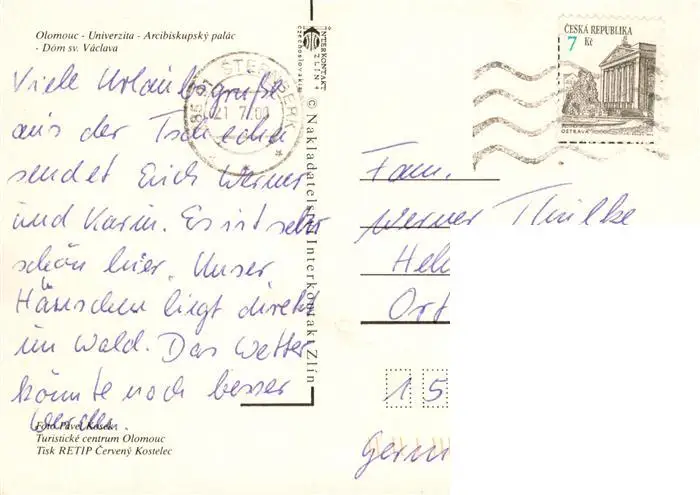 Olomouc - Univerzita - Arcibiskupský palác
- Dóm sv. Václava
Viele Urlaubsgrüße
aus der Tschechei
sendet Euch Werner
und Karin. Es ist sehr
schön hier. Unser
Häuschen liegt direkt
im Wald. Das Wetter
könnte noch besser
werden.
Foto Pavel Kosek
Turistické centrum Olomouc
Tisk RETIP Červený Kostelec
INTERKONTAKT
ZLÍN
czechoslovakia
© Nakladatelství Interkontakt Zlín
21 7.00
ČESKÁ REPUBLIKA
7 Kč
OSTRAVA
Fam.
Werner Thilke
Hel
Ort
15
Germ